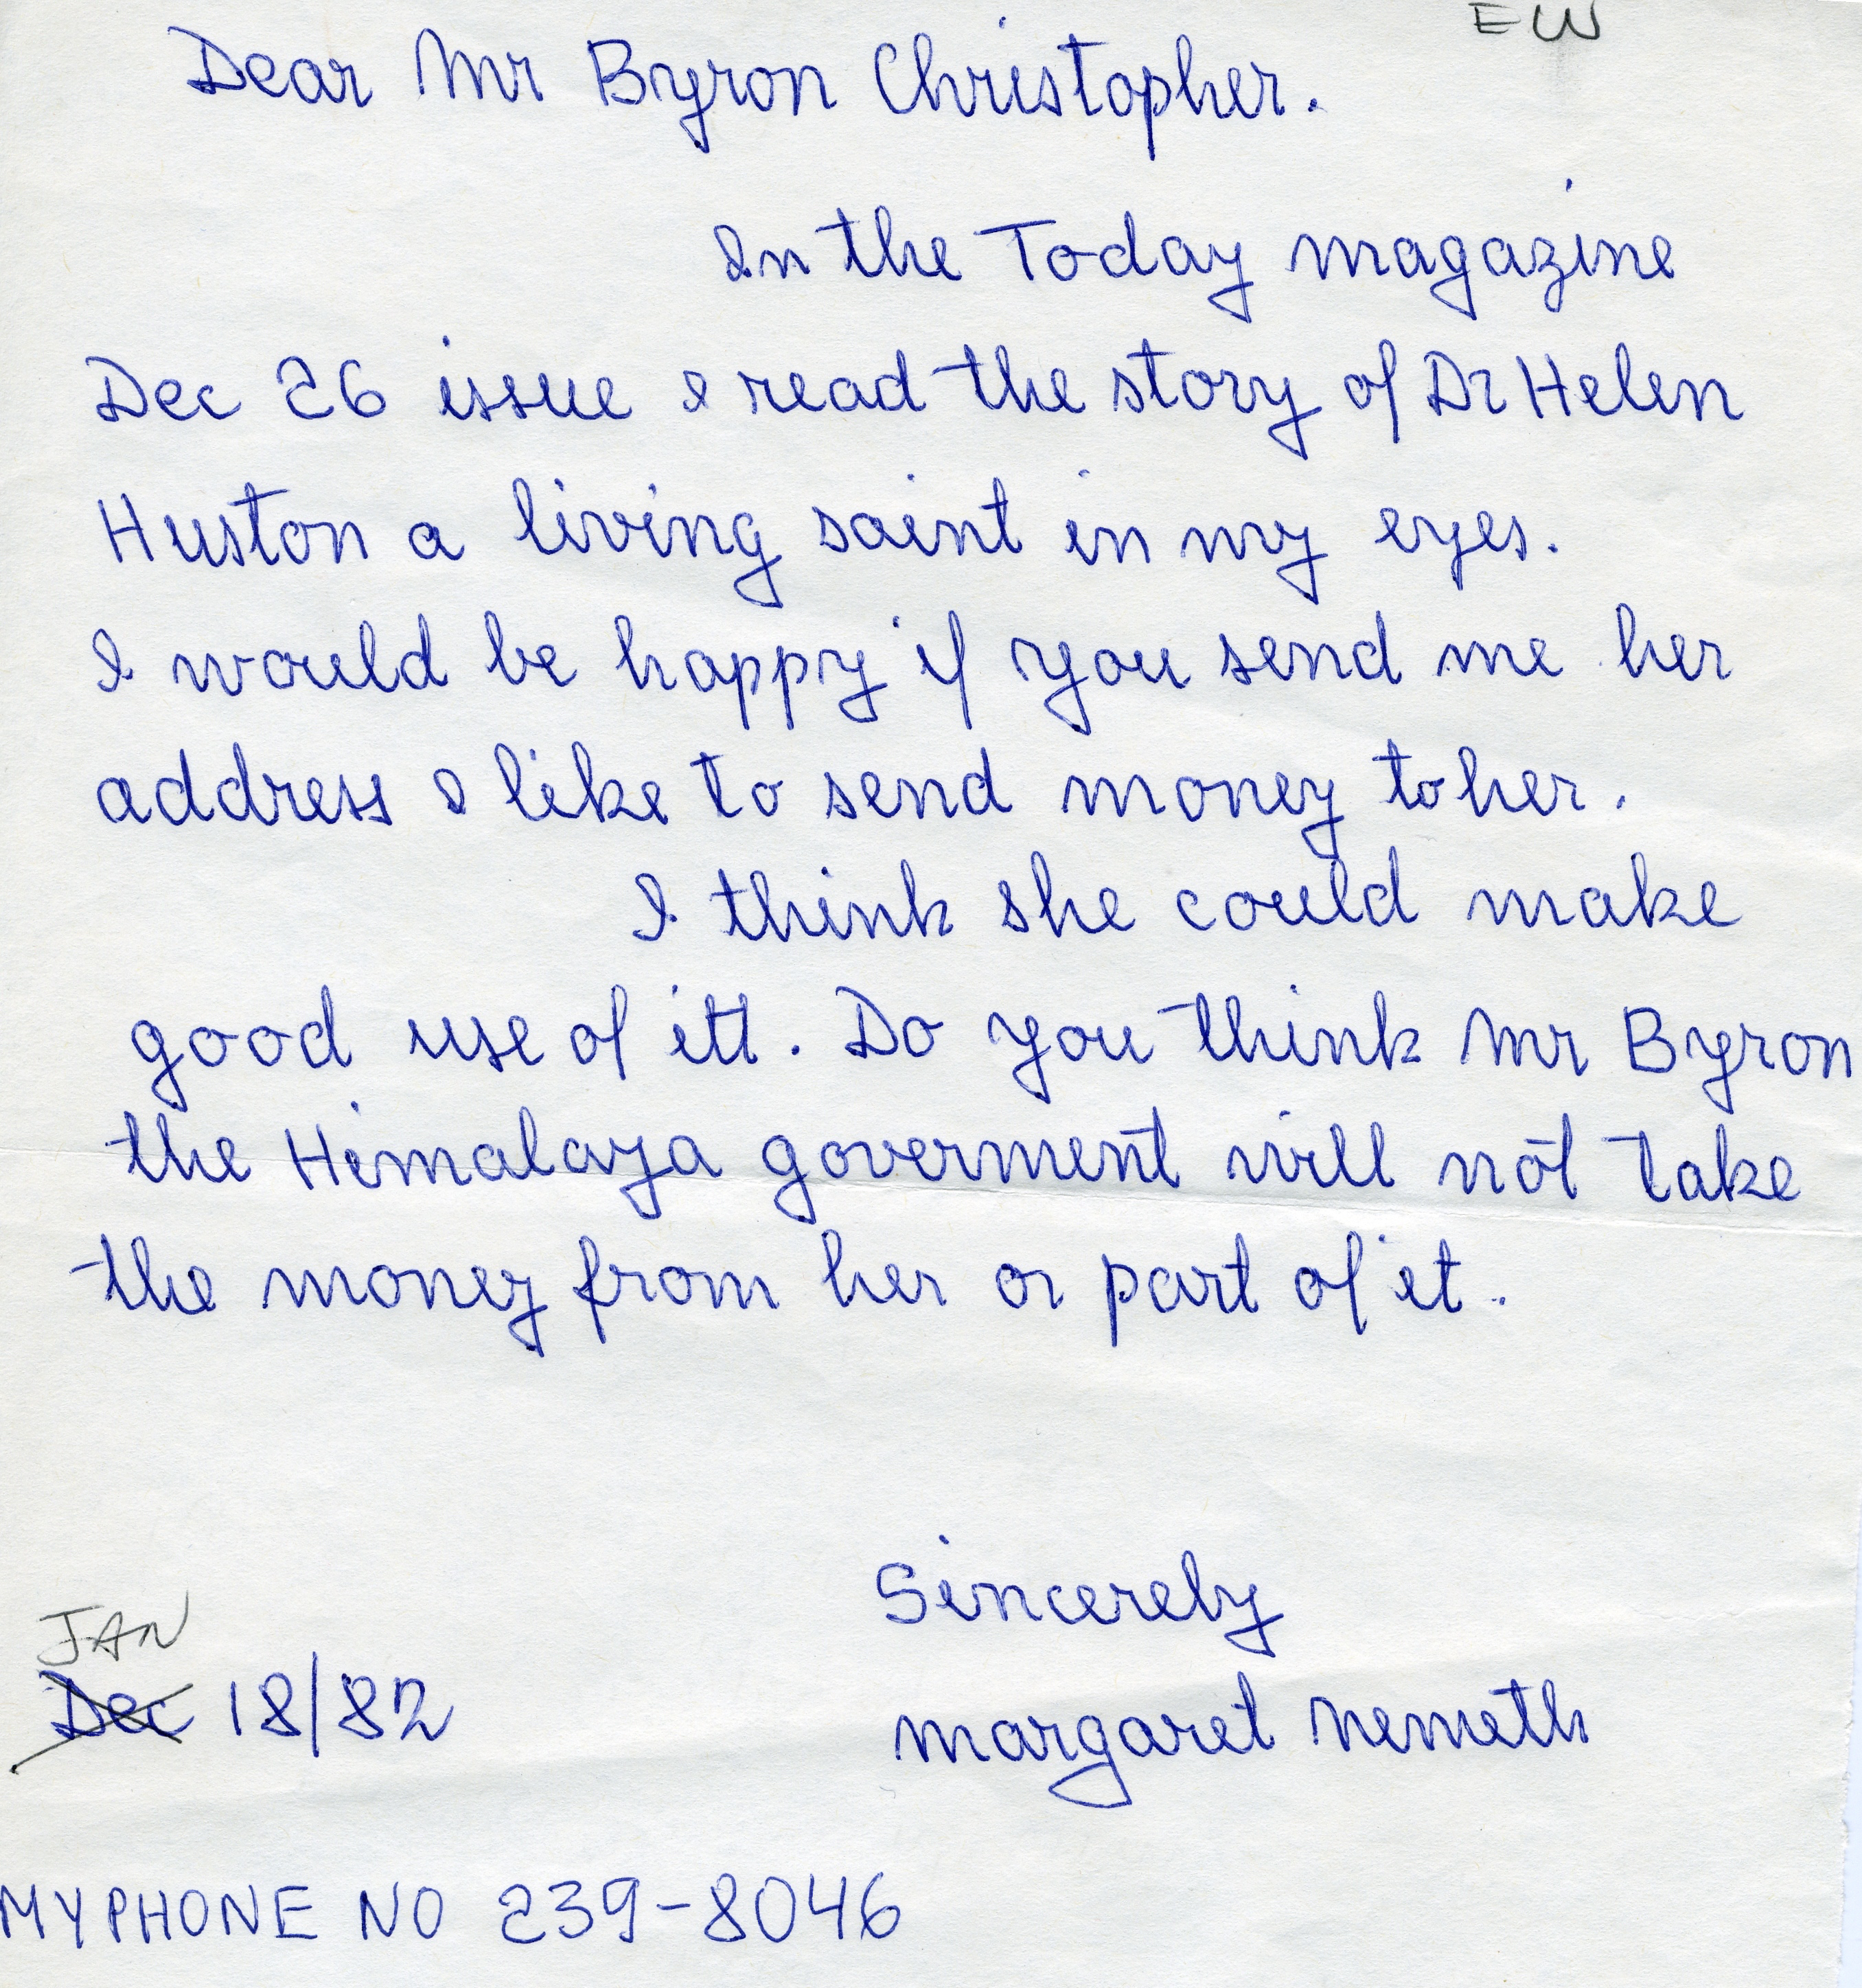 EW
Dear Mr Byron Christopher.
In the Today magazine
Dec 26 issue I read the story of Dr Helen
Huston a living saint in my eyes.
I would be happy if you send me her
address I like to send money to her.
I think she could make
good use of itt. Do you think Mr Byron
the Himalaya goverment will not take
the money from her or part of it.
Sincerely
JAN
Dec 18/82
Margaret Nemeth
MY PHONE NO 239-8046